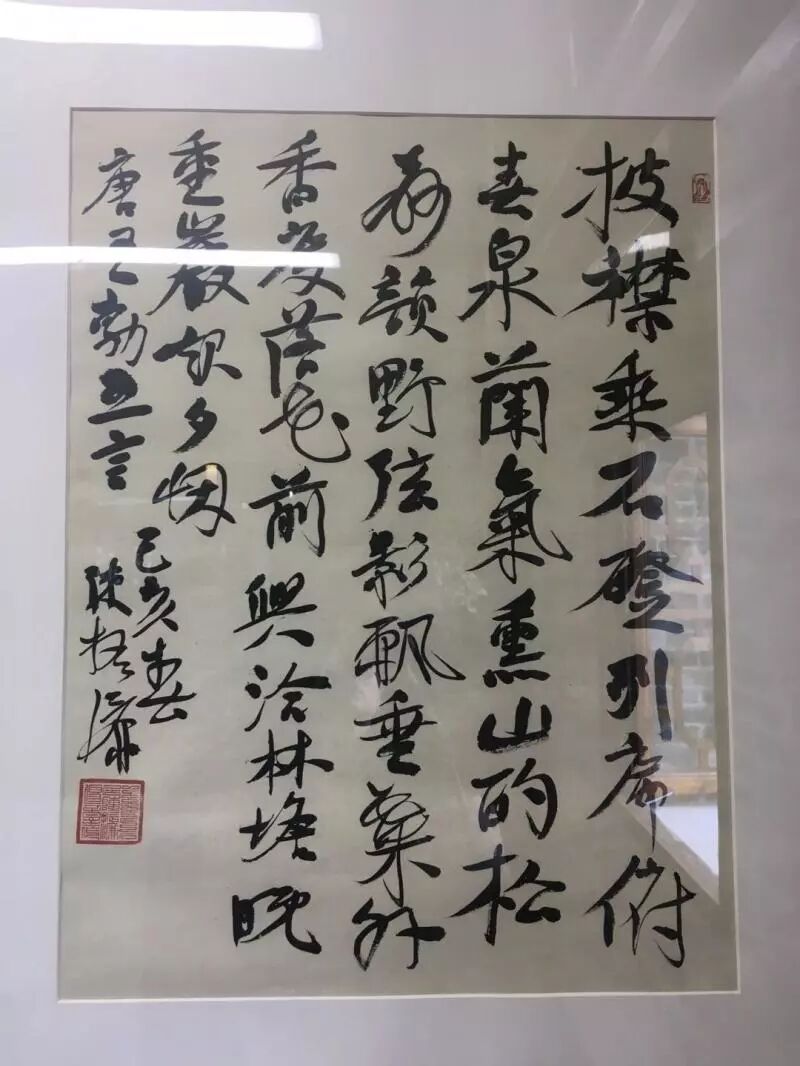 披襟乘石磴列席俯
春泉蘭氣熏山酌松
聲韻野弦影飄垂葉外
香度落花前興洽林塘晚
重巖起夕烟
唐王勃五言
己亥春
陳振濂